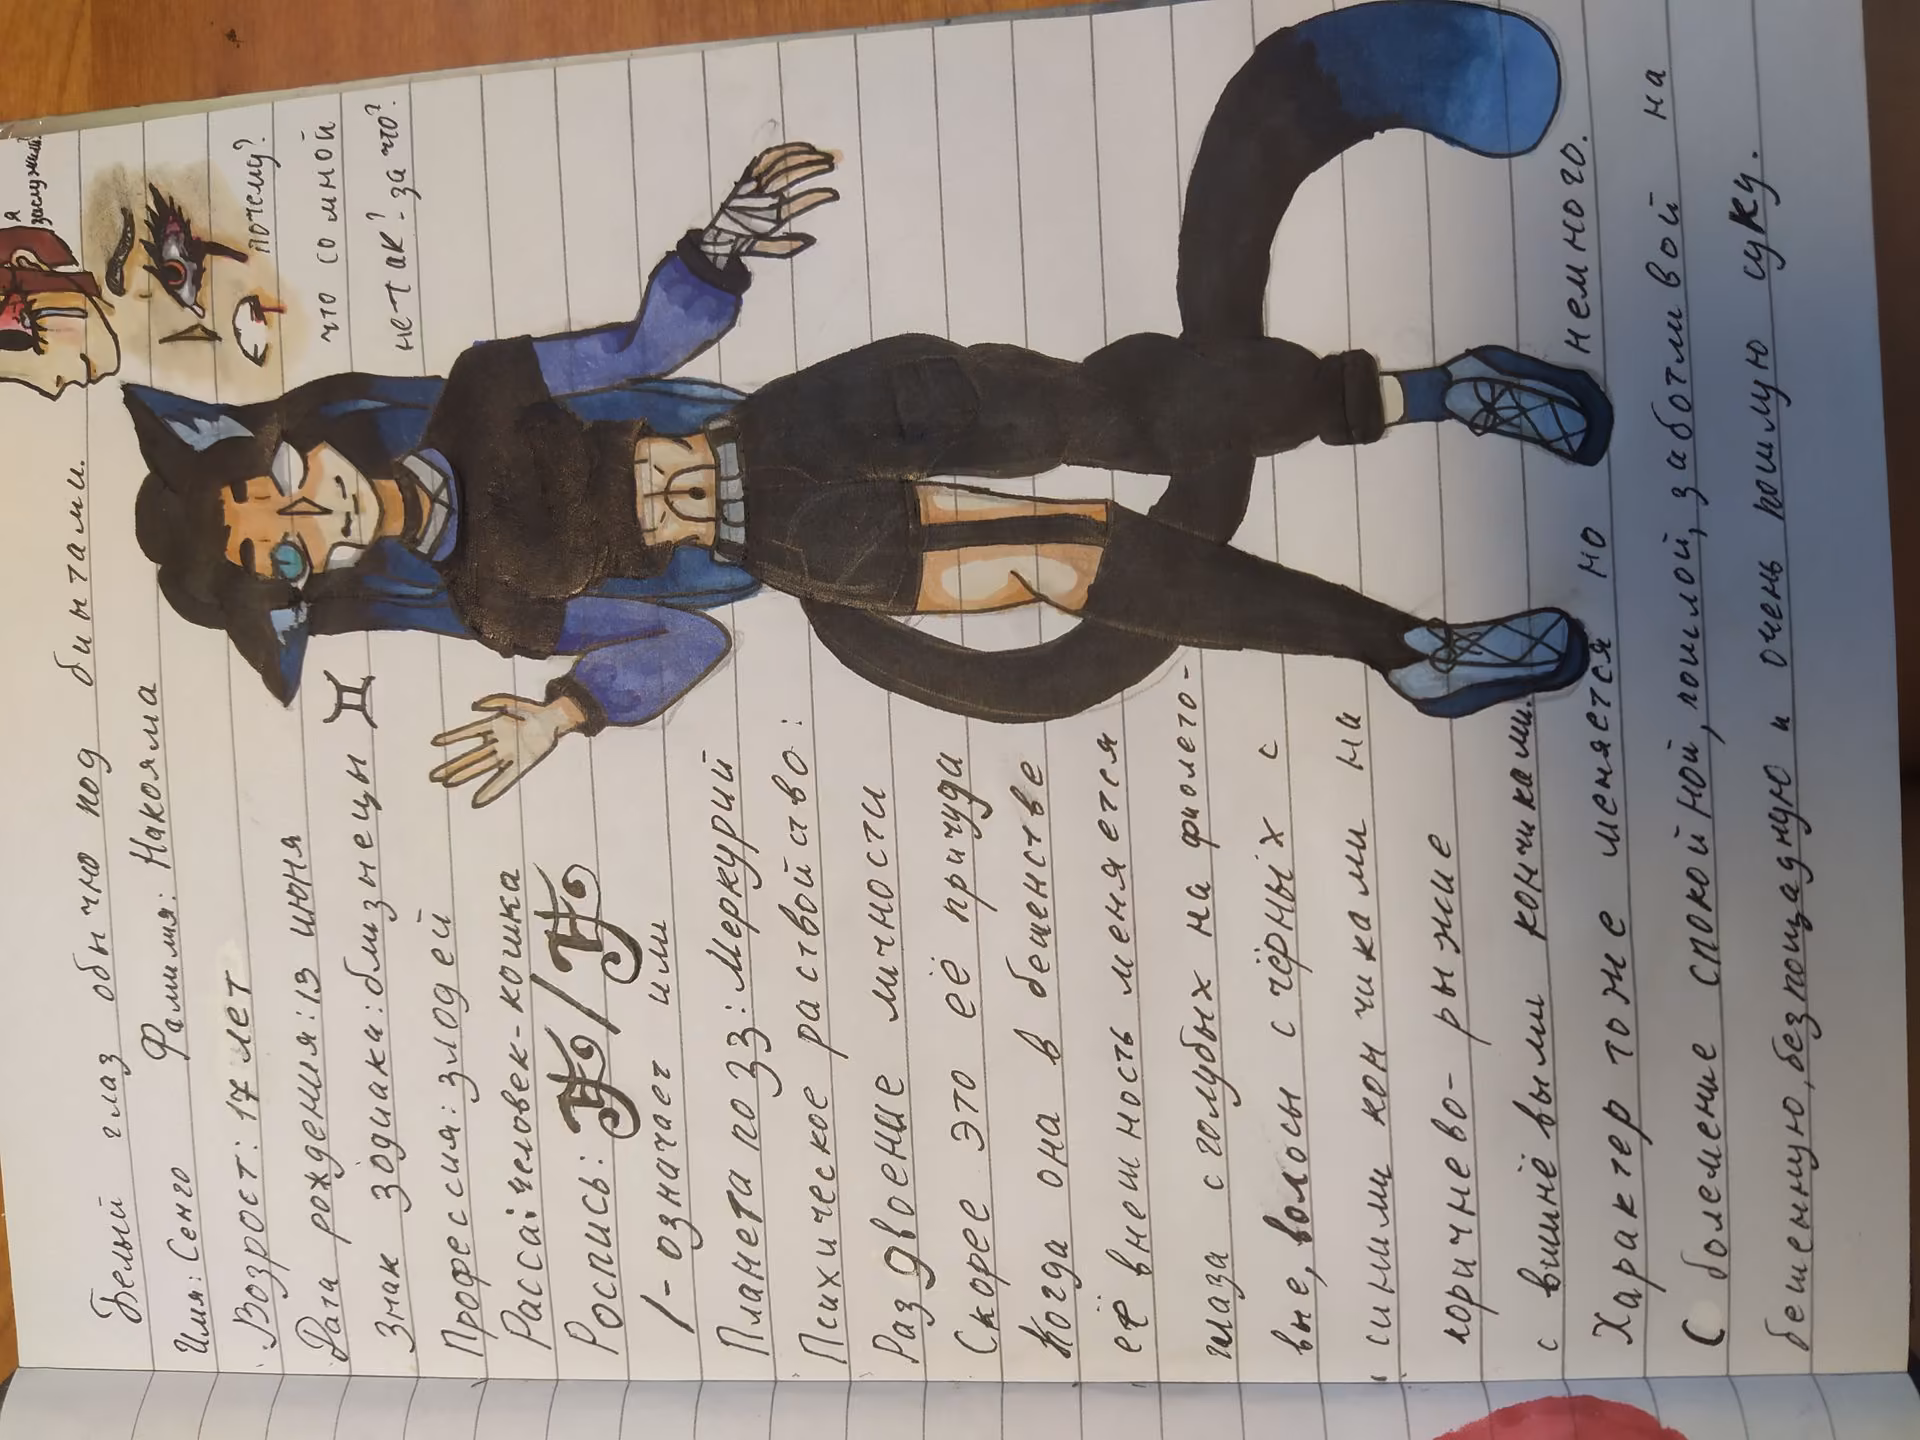 я
заслужила
Белый глаз обычно под бинтами.
Имя: Сенго Фамилия: Накояма
Возрост: 17 лет
почему?
Дата рождения: 13 июня
что со мной
Знак зодиака: близнецы ♊
не так? за что?
Профессия: злодей
Расса: человек-кошка
Роспись: /
/ - означает или
Планета по зз: Меркурий
Психическое раствойство:
Раздвоение личности
Скорее это её причуда
Когда она в бешенстве
её внешность меняется
глаза с голубых на фиолето-
вые, волосы с чёрных с
синими кончиками на
коричнево-рыжие
с вишнёвыми кончиками.
Характер тоже меняется но немного.
С болемение спокойной, пошлой, заботливой на
бешенную, безпощадную и очень пошлую суку.